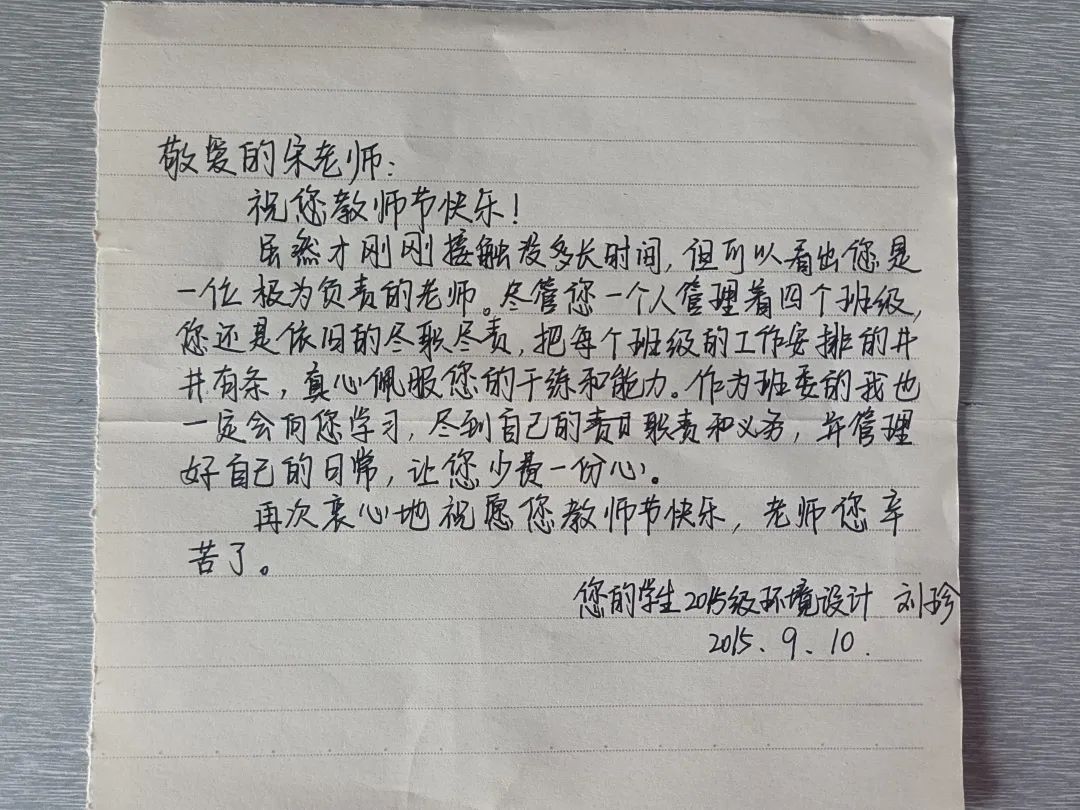 敬爱的宋老师:
祝您教师节快乐!
虽然才刚刚接触没多长时间,但可以看出您是
一位极为负责的老师。尽管您一个人管理着四个班级,
您还是依旧的尽职尽责,把每个班级的工作安排的井
井有条,真心佩服您的干练和能力。作为班委的我也
一定会向您学习,尽到自己的责日职责和义务,并管理
好自己的日常,让您少费一份心。
再次衷心地祝愿您教师节快乐,老师您辛
苦了。
您的学生2015级环境设计 刘珍
2015、9、10.